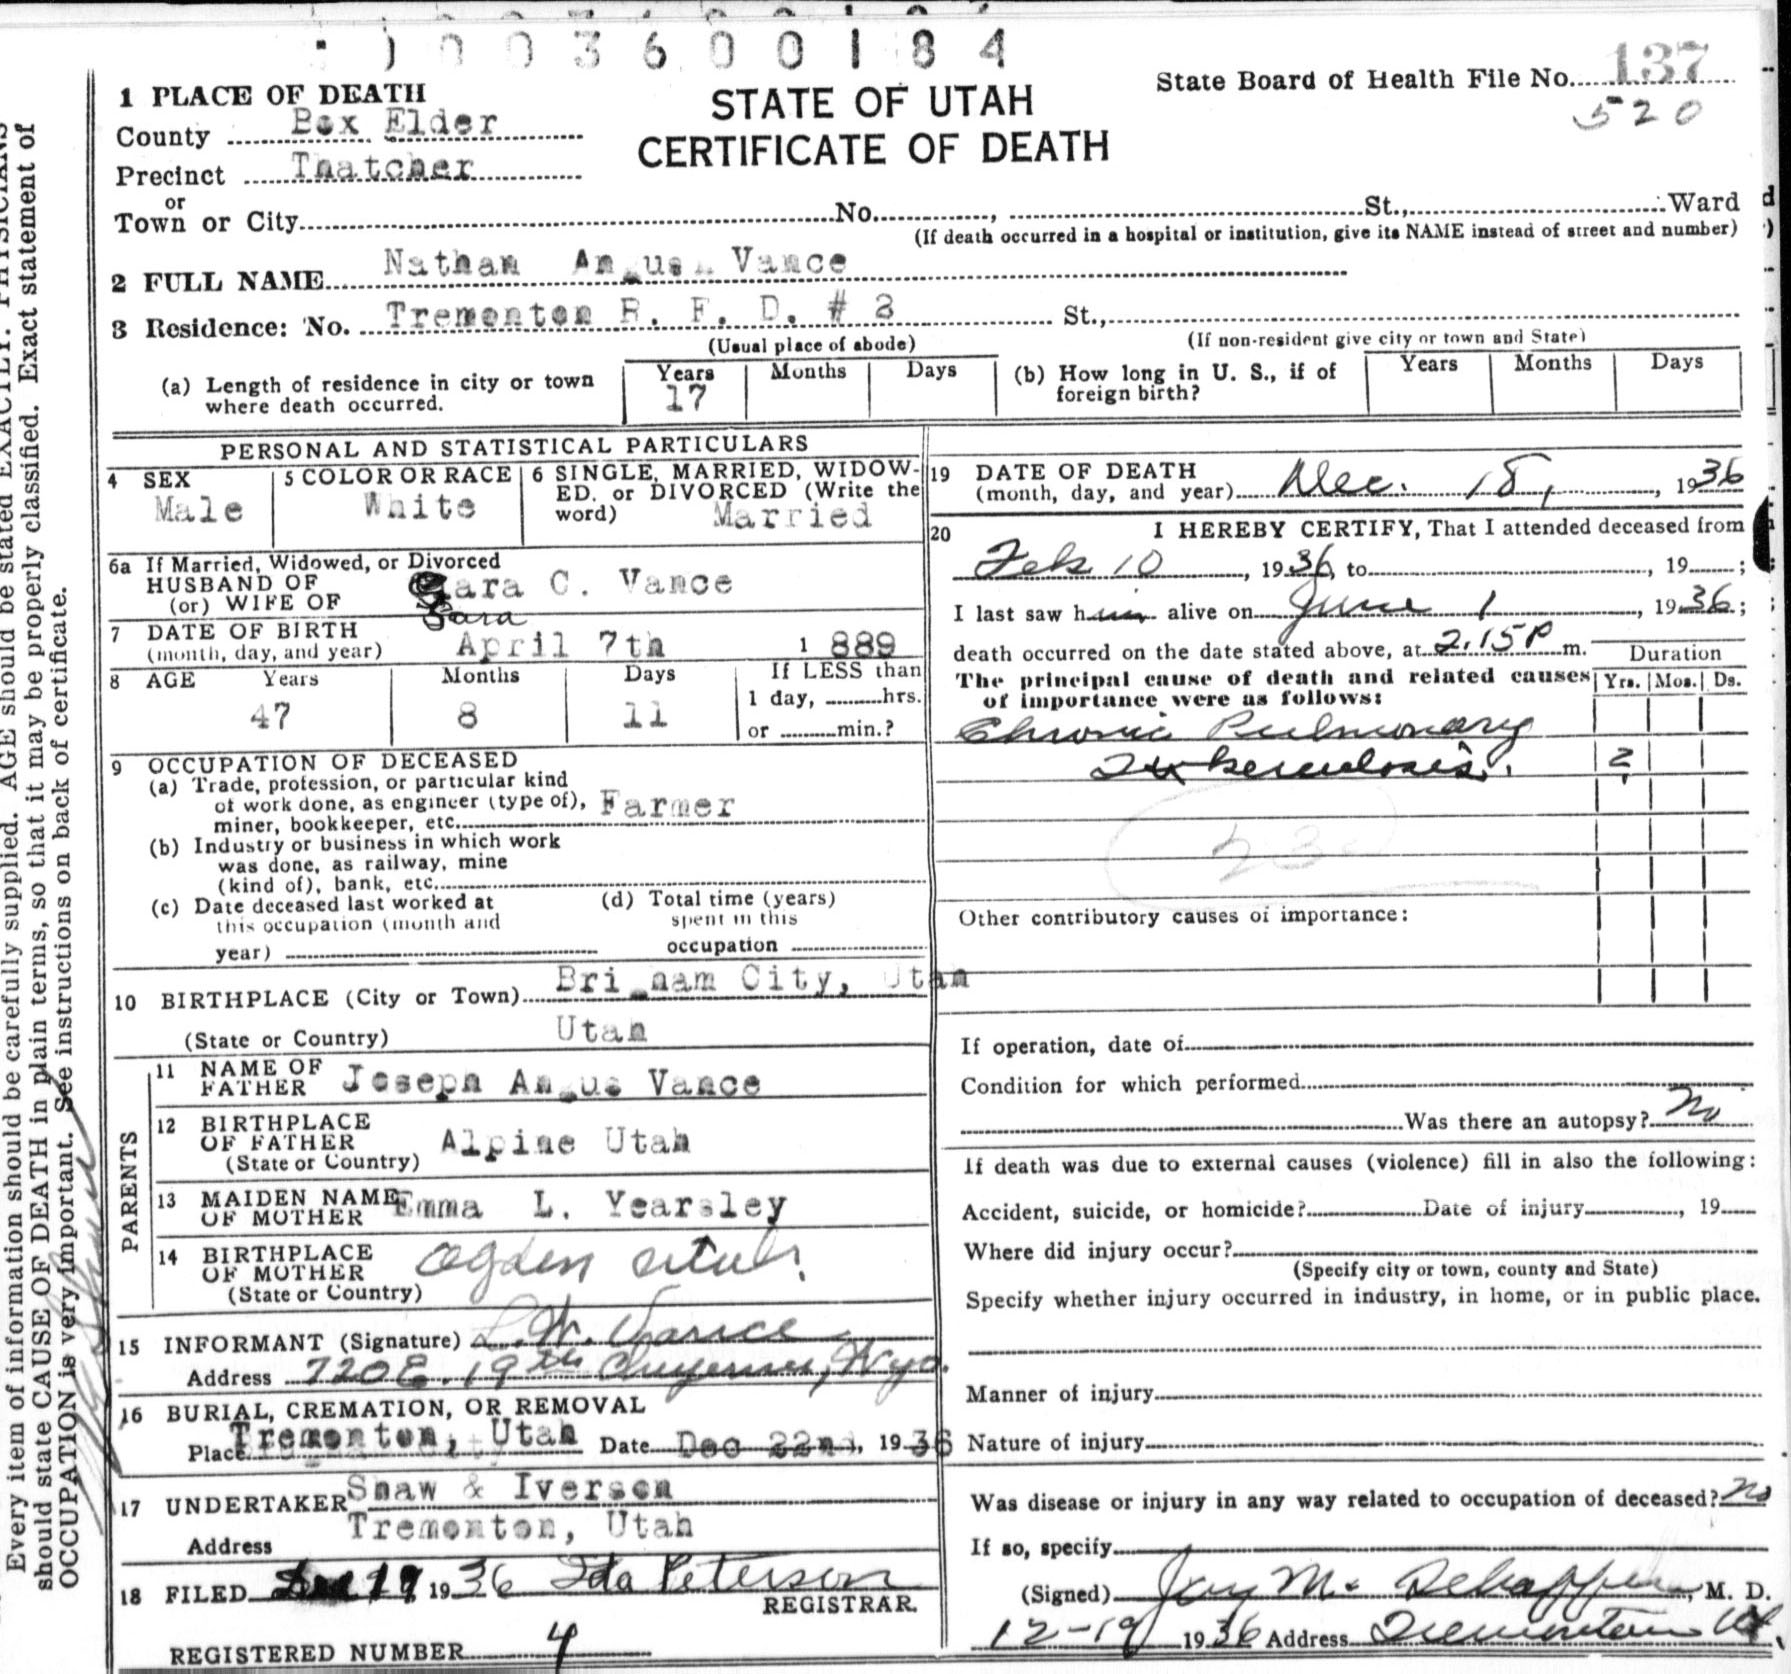 1003600184
State Board of Health File No. 137
520
STATE OF UTAH
CERTIFICATE OF DEATH
1 PLACE OF DEATH
County Box Elder
Precinct Thatcher
or
Town or City No. , St., Ward
(If death occurred in a hospital or institution, give its NAME instead of street and number)
2 FULL NAME Nathan Angus Vance
3 Residence: No. Tremonton R. F. D. # 3 St.,
(Usual place of abode) (If non-resident give city or town and State)
(a) Length of residence in city or town where death occurred. Years 17 Months Days
(b) How long in U. S., if of foreign birth? Years Months Days
PERSONAL AND STATISTICAL PARTICULARS
4 SEX Male
5 COLOR OR RACE White
6 SINGLE, MARRIED, WIDOW-
ED, or DIVORCED (Write the
word) Married
6a If Married, Widowed, or Divorced
HUSBAND OF
(or) WIFE OF Sara C. Vance
Sara
7 DATE OF BIRTH
(month, day, and year) April 7th 1 889
8 AGE Years 47 Months 8 Days 11
If LESS than
1 day, hrs.
or min.?
9 OCCUPATION OF DECEASED
(a) Trade, profession, or particular kind
of work done, as engineer (type of),
miner, bookkeeper, etc. Farmer
(b) Industry or business in which work
was done, as railway, mine
(kind of), bank, etc.
(c) Date deceased last worked at
this occupation (month and
year)
(d) Total time (years)
spent in this
occupation
10 BIRTHPLACE (City or Town) Brigham City, Utah
(State or Country) Utah
PARENTS
11 NAME OF
FATHER Joseph Angus Vance
12 BIRTHPLACE
OF FATHER
(State or Country) Alpine Utah
13 MAIDEN NAME
OF MOTHER Emma L. Yearsley
14 BIRTHPLACE
OF MOTHER
(State or Country) Ogden Utah.
15 INFORMANT (Signature) L. W. Vance
Address 720 E. 19th Cheyenne, Wyo.
16 BURIAL, CREMATION, OR REMOVAL
Place Tremonton, Utah Date Dec 22nd, 1936
17 UNDERTAKER Shaw & Iverson
Address Tremonton, Utah
18 FILED Dec 19 1936 Ida Peterson
REGISTRAR.
REGISTERED NUMBER 4
19 DATE OF DEATH
(month, day, and year) Dec. 18, , 1936
20 I HEREBY CERTIFY, That I attended deceased from
Feb 10 , 1936, to , 19 ;
I last saw him alive on June 1 , 1936;
death occurred on the date stated above, at 2.15 P m.
Duration
The principal cause of death and related causes
of importance were as follows:
Yrs. Mos. Ds.
Chronic Pulmonary
Tuberculosis. ?
23
Other contributory causes of importance:
If operation, date of
Condition for which performed
Was there an autopsy? No
If death was due to external causes (violence) fill in also the following:
Accident, suicide, or homicide? Date of injury , 19
Where did injury occur?
(Specify city or town, county and State)
Specify whether injury occurred in industry, in home, or in public place.
Manner of injury
Nature of injury
Was disease or injury in any way related to occupation of deceased? No
If so, specify
(Signed) Jay M. Schaffer, M. D.
12-19 1936 Address Tremonton Ut.
Every item of information should be carefully supplied. AGE should be stated EXACTLY. PHYSICIANS
should state CAUSE OF DEATH in plain terms, so that it may be properly classified. Exact statement of
OCCUPATION is very important. See instructions on back of certificate.